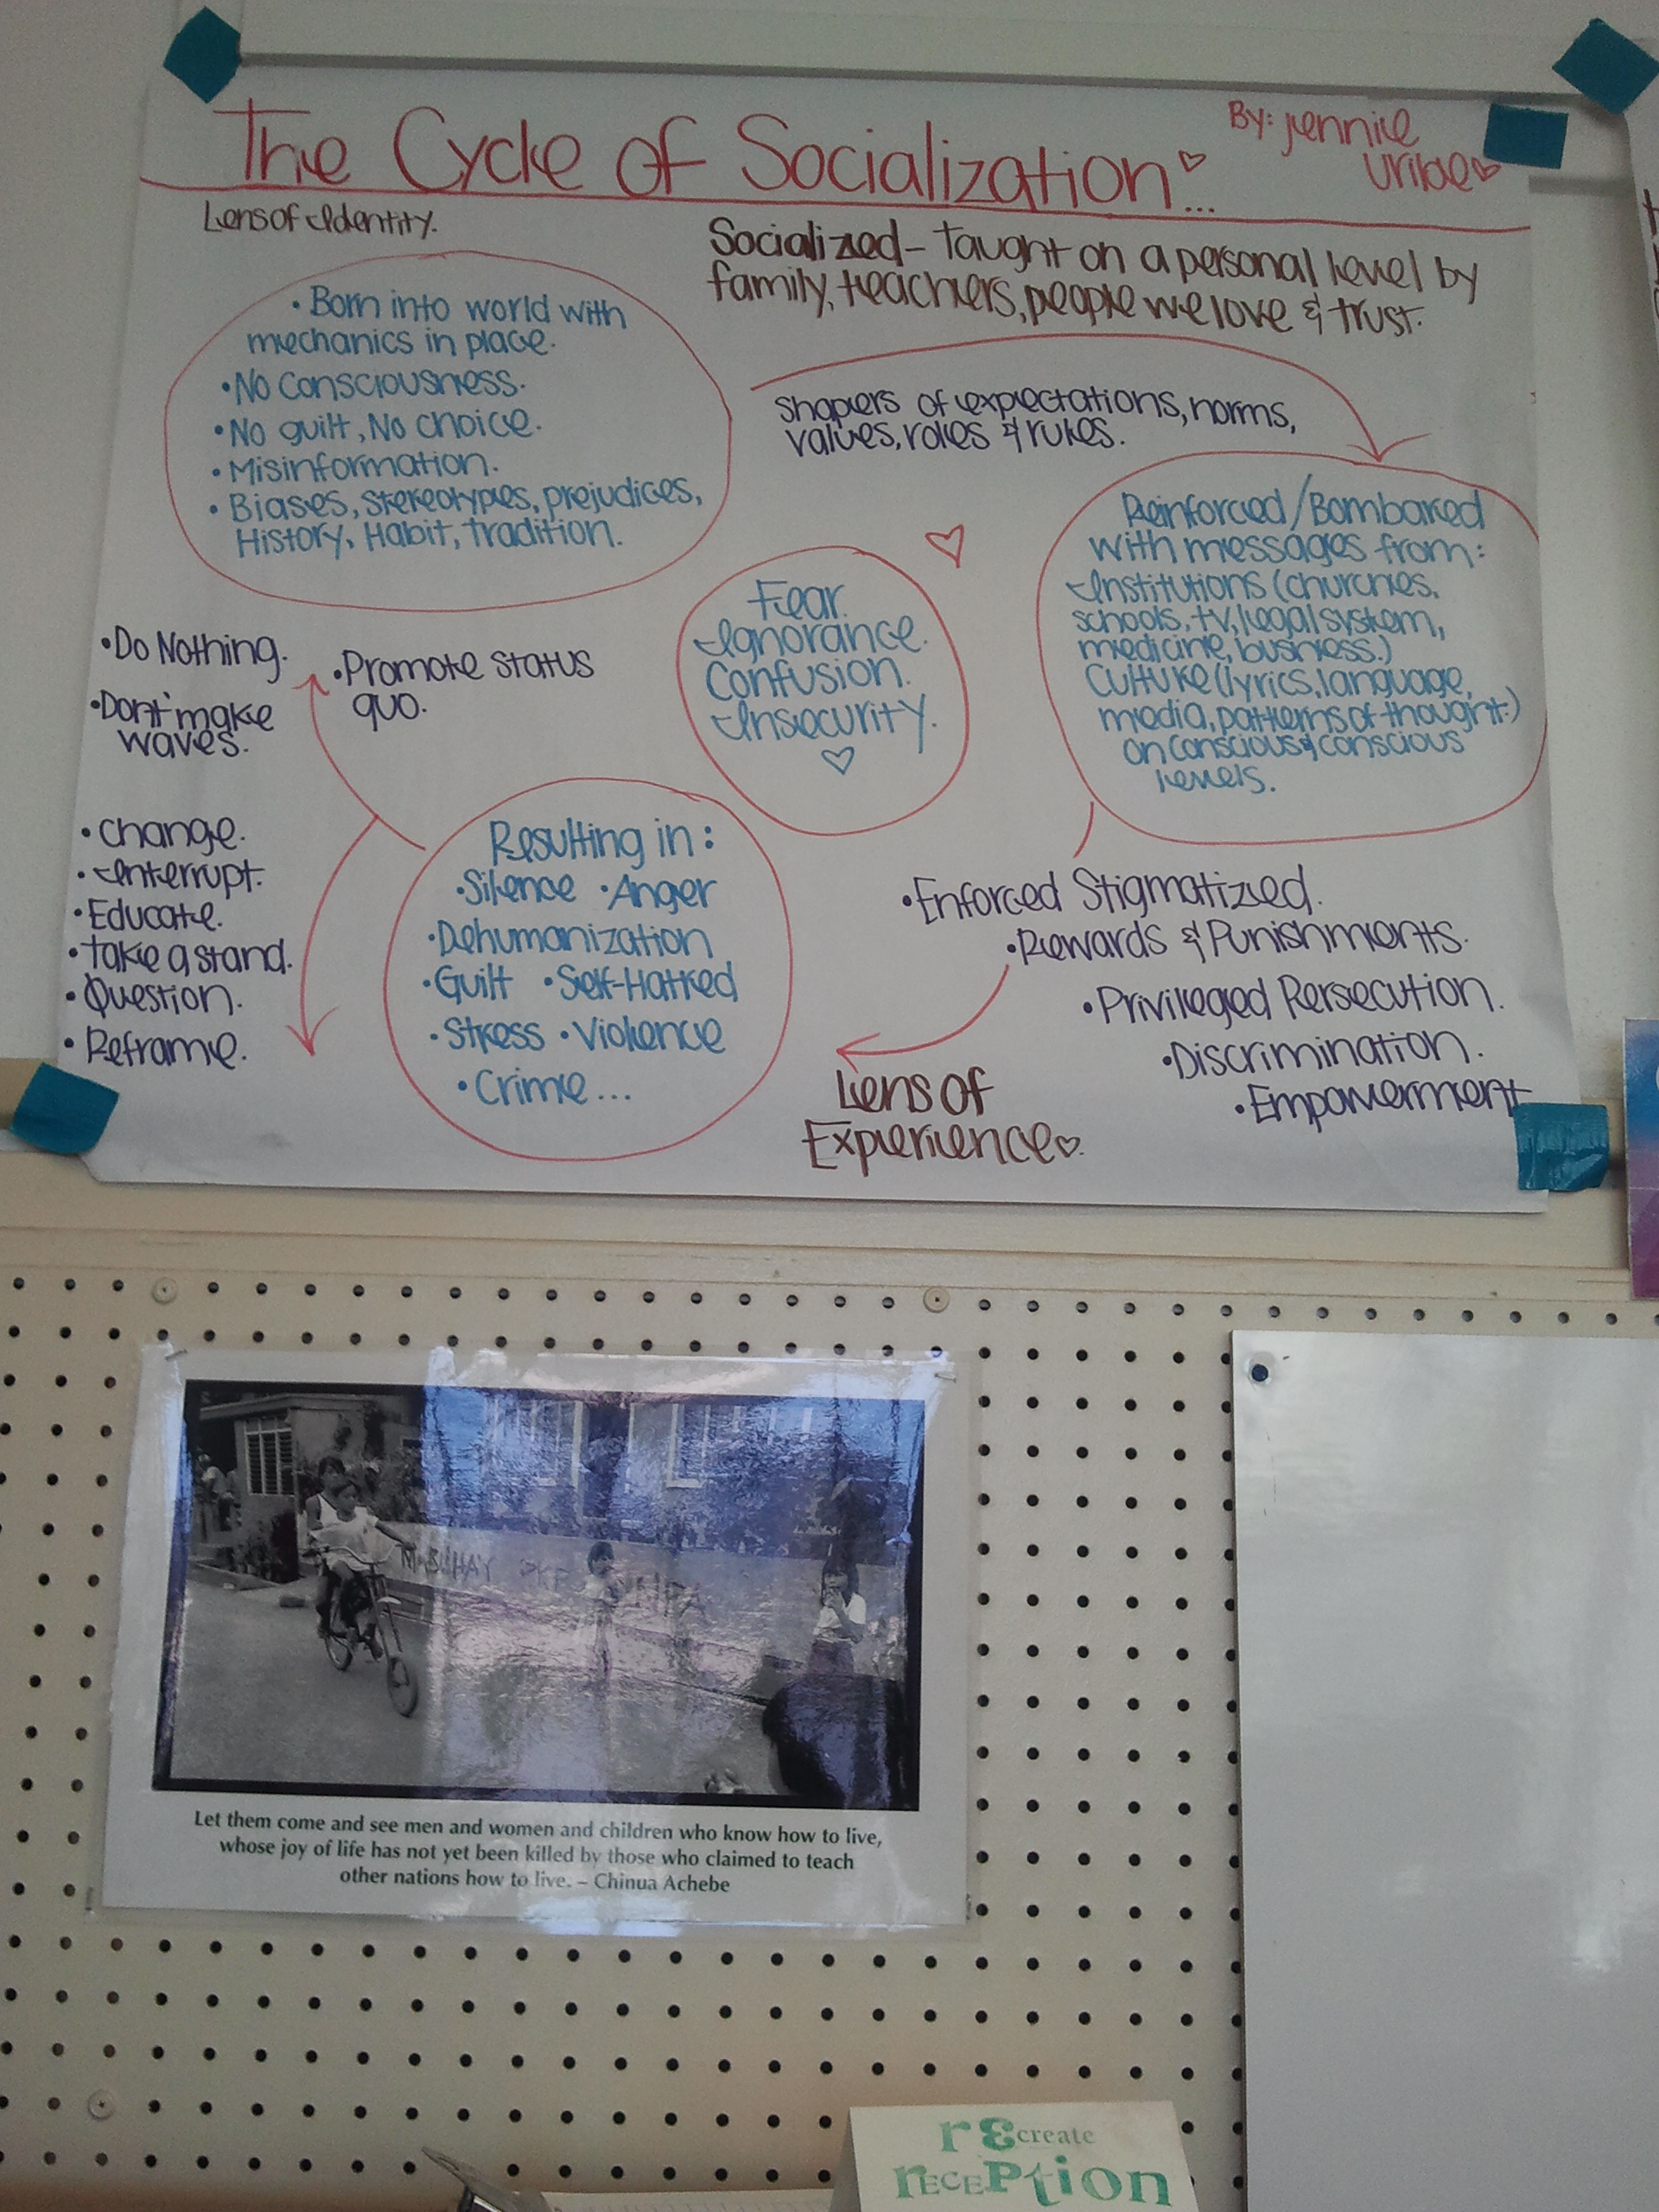 The Cycle of Socialization...
By: Jennie
Uribe
Lens of Identity.
Socialized - Taught on a personal level by
family, teachers, people we love & trust.
• Born into world with
mechanics in place.
• No Consciousness.
• No guilt, No choice.
• Misinformation.
• Biases, Stereotypes, prejudices,
History, Habit, Tradition.
shapers of expectations, norms,
values, roles & rules.
Reinforced/Bombared
with messages from:
Institutions (churches,
schools, tv, legal system,
medicine, business.)
Culture (lyrics, language,
media, patterns of thought.)
on conscious & conscious
levels.
Fear.
Ignorance.
Confusion.
Insecurity.
• Do Nothing.
• Dont' make
waves.
• Promote status
quo.
• Change.
• Interrupt.
• Educate.
• Take a stand.
• Question.
• Reframe.
Resulting in:
• Silence • Anger
• Dehumanization
• Guilt • Self-Hatred
• Stress • Violence
• Crime...
• Enforced Stigmatized.
• Rewards & Punishments.
• Privileged Persecution.
• Discrimination.
• Empowerment
Lens of
Experience
MABUHAY
Let them come and see men and women and children who know how to live,
whose joy of life has not yet been killed by those who claimed to teach
other nations how to live. – Chinua Achebe
rEcreate
rECEPtion